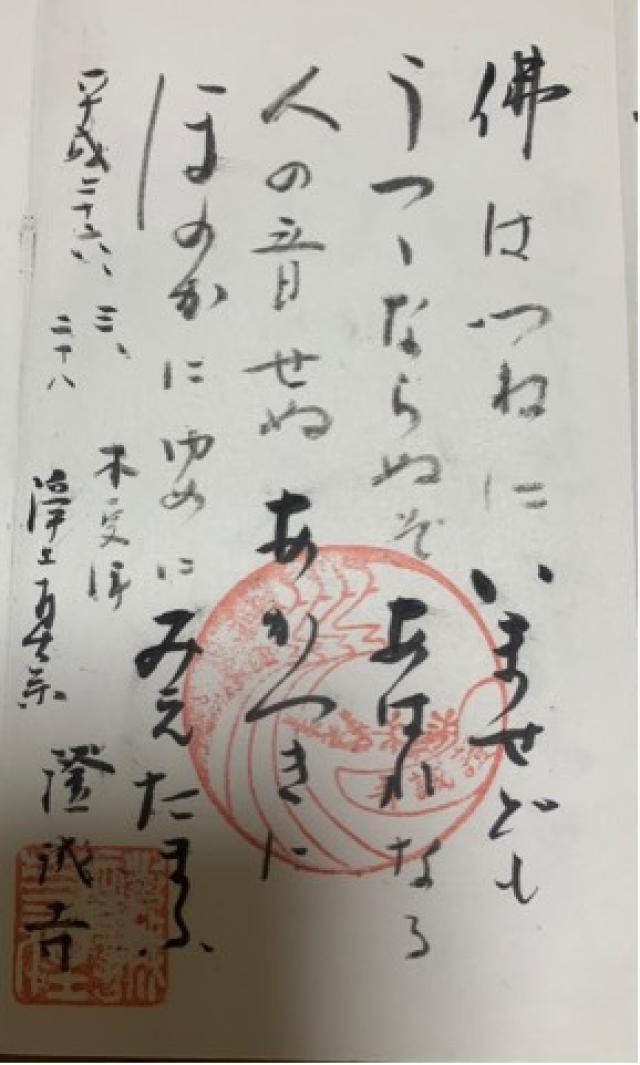 佛はつねにいませども
うつゝならぬぞあはれなる
人の音せぬあかつきに
ほのかにゆめにみえたまふ
平成二十六、三、二十八
浄土真宗
澄誠寺